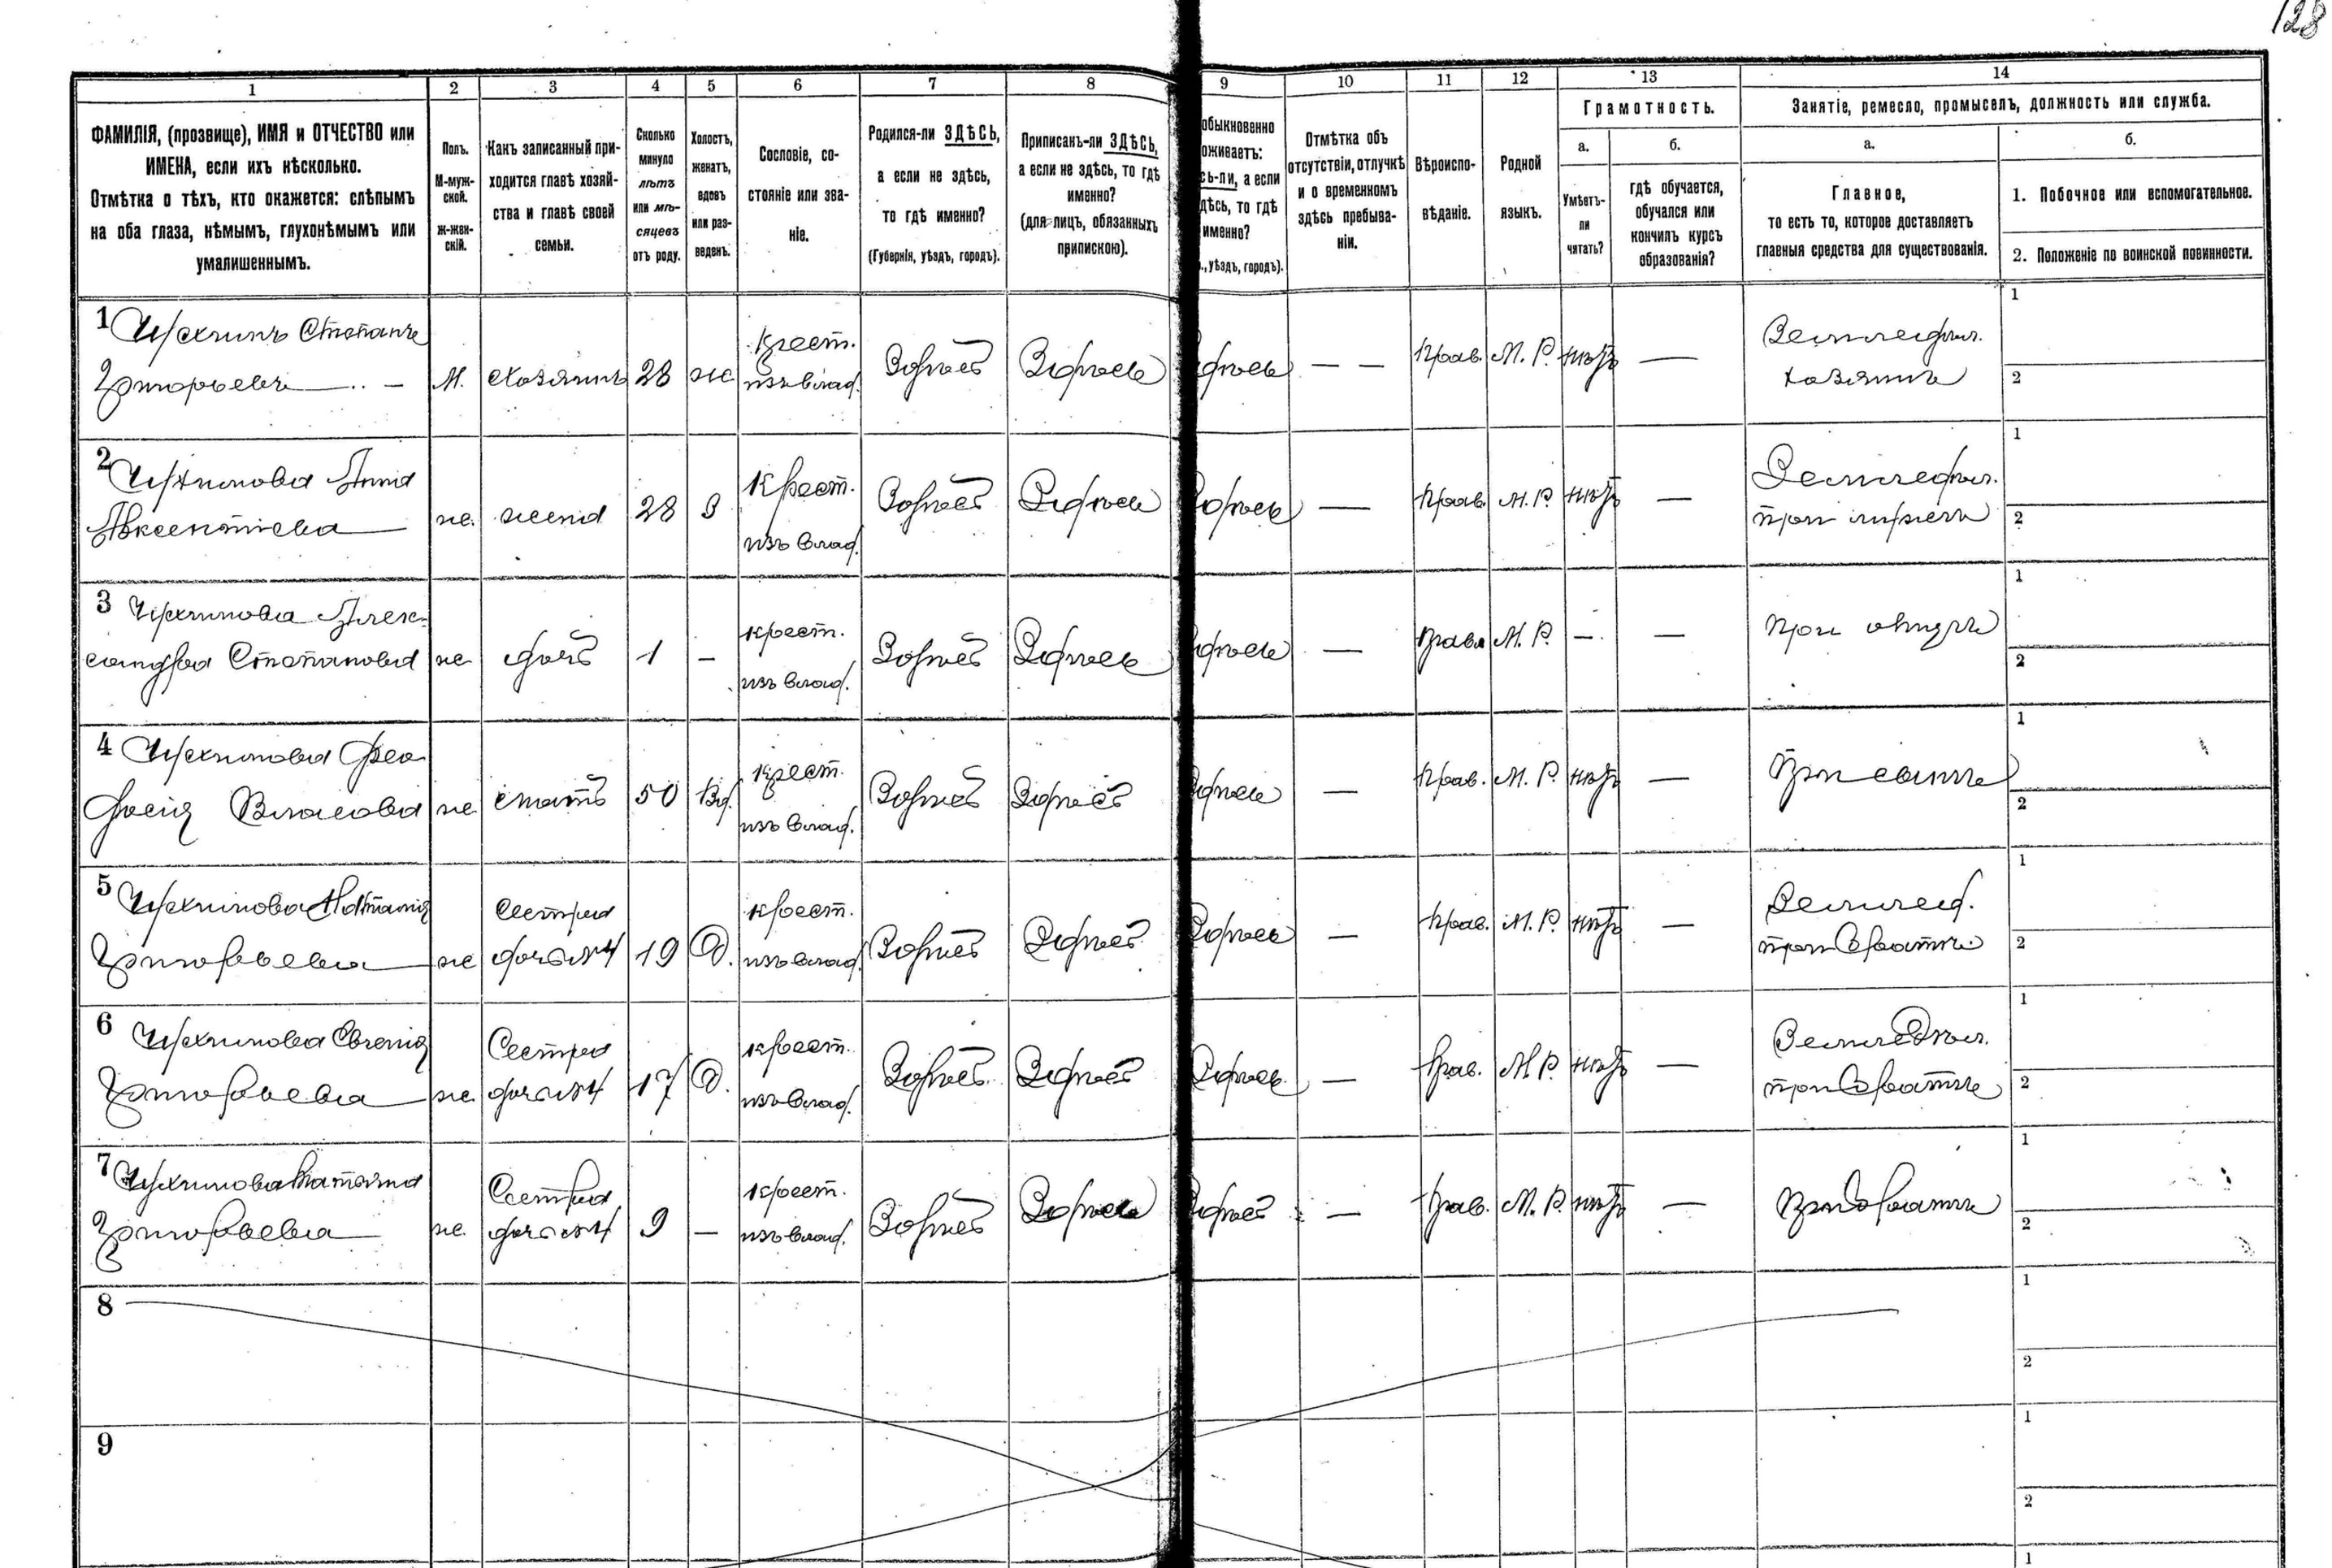 128
1 2 3 4 5 6 7 8 9 10 11 12 13 14
ФАМИЛІЯ, (прозвище), ИМЯ и ОТЧЕСТВО или
ИМЕНА, если ихъ нѣсколько.
Отмѣтка о тѣхъ, кто окажется: слѣпымъ
на оба глаза, нѣмымъ, глухонѣмымъ или
умалишеннымъ.
Полъ.
М-муж-
ской.
Ж-жен-
скій.
Какъ записанный при-
ходится главѣ хозяй-
ства и главѣ своей
семьи.
Сколько
минуло
лѣтъ
или мѣ-
сяцевъ
отъ роду.
Холостъ,
женатъ,
вдовъ
или раз-
веденъ.
Сословіе, со-
стояніе или зва-
ніе.
Родился-ли ЗДѢСЬ,
а если не здѣсь,
то гдѣ именно?
(Губернія, уѣздъ, городъ).
Приписанъ-ли ЗДѢСЬ,
а если не здѣсь, то гдѣ
именно?
(для лицъ, обязанныхъ
припискою).
обыкновенно
оживаетъ:
сь-ли, а если
дѣсь, то гдѣ
именно?
., уѣздъ, городъ).
Отмѣтка объ
отсутствіи, отлучкѣ
и о временномъ
здѣсь пребыва-
ніи.
Вѣроиспо-
вѣданіе.
Родной
языкъ.
Грамотность.
а.
Умѣетъ-
ли
читать?
б.
гдѣ обучается,
обучался или
кончилъ курсъ
образованія?
Занятіе, ремесло, промыселъ, должность или служба.
а.
Главное,
то есть то, которое доставляетъ
главныя средства для существованія.
б.
1. Побочное или вспомогательное.
2. Положеніе по воинской повинности.
1 Степанъ
Григорьевъ — М. хозяинъ 28 ж Крест. изъ влад. Здѣсь Здѣсь дѣсь — — Прав. М. Р. нѣтъ — Земледѣл. хозяинъ 1 2
2 Анна
Авксентіева ж. жена 28 З Крест. изъ влад. Здѣсь Здѣсь Здѣсь — Прав. М. Р. нѣтъ — Земледѣл. при мужѣ 1 2
3 Алек-
сандра Степанова ж дочь 1 — крест. изъ влад. Здѣсь Здѣсь дѣсь — Прав. М. Р. — — при отцѣ 1 2
4 Фео-
досія Власова ж мать 50 Вд. крест. изъ влад. Здѣсь Здѣсь Здѣсь — Прав. М. Р. нѣтъ — При сынѣ 1 2
5 Наталія
Григорьева ж Сестра дочь №4 19 Д. крест. изъ влад. Здѣсь Здѣсь Здѣсь — Прав. М. Р. нѣтъ — Земледѣл. при братѣ 1 2
6 Евгенія
Григорьева ж Сестра дочь №4 17 Д. крест. изъ влад. Здѣсь Здѣсь Здѣсь — Прав. М. Р. нѣтъ — Земледѣл. при братѣ 1 2
7 Татьяна
Григорьева ж. Сестра дочь №4 9 — крест. изъ влад. Здѣсь Здѣсь Здѣсь — Прав. М. Р. нѣтъ — При братѣ 1 2
8 1 2
9 1 2
1